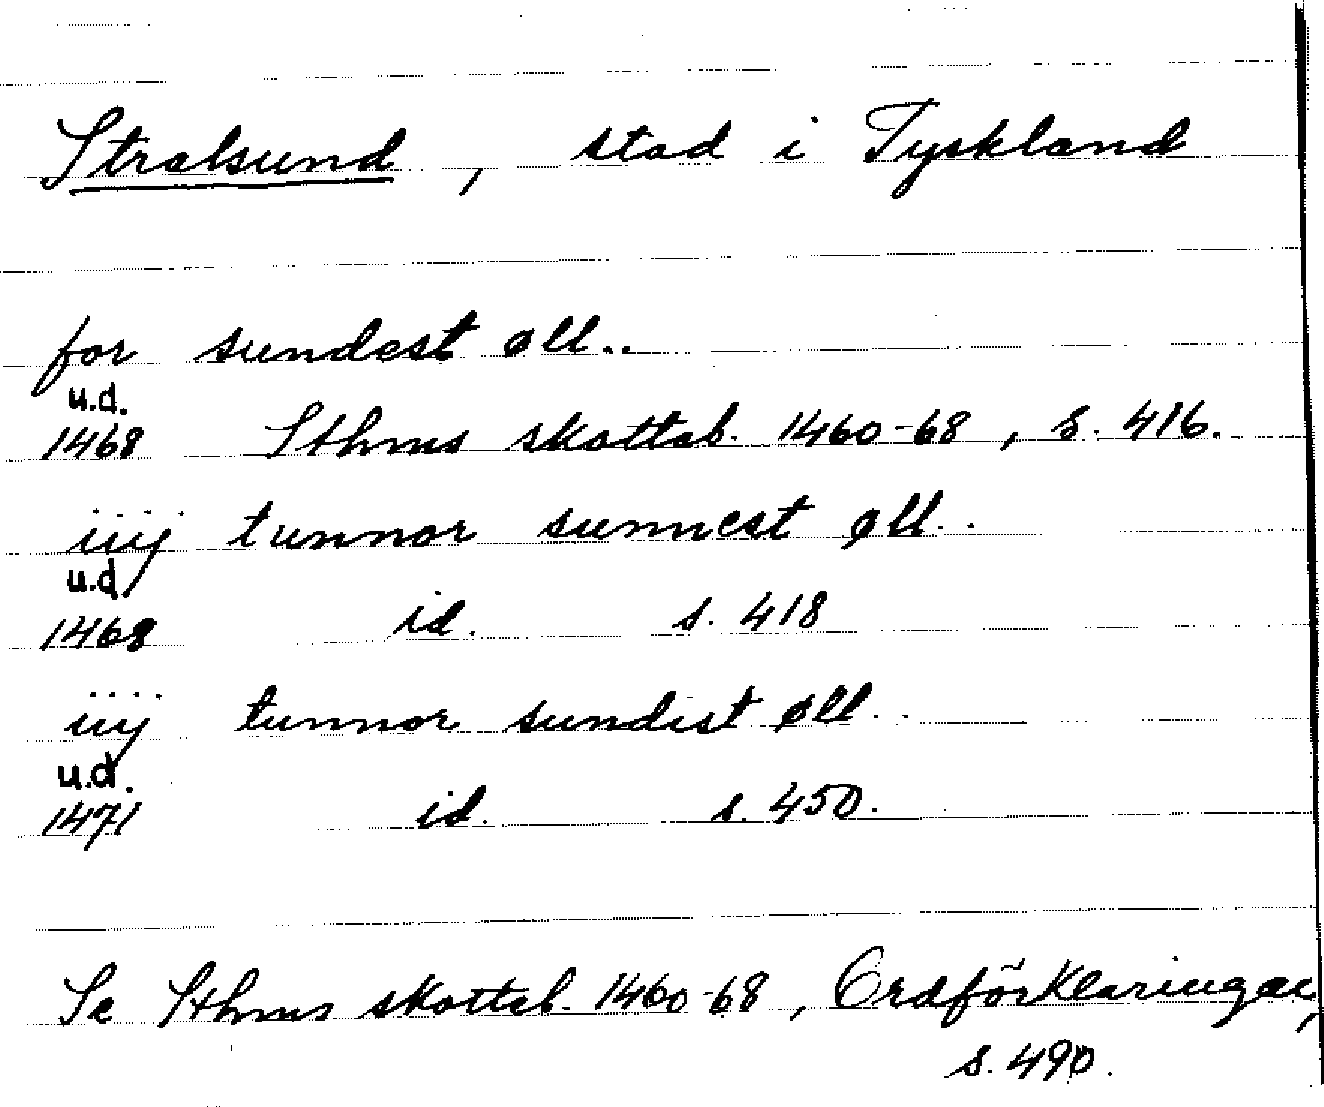 Stralsund, stad i Tyskland
for sundest øll..
u.d.
1468 Sthms skotteb. 1460-68, s. 416.
iiij tunnor sunnest øll..
u.d.
1468 id. s. 418
iiij tunnor sundist øll..
u.d.
1471 id. s. 450.
Se Sthms skotteb. 1460-68, Ordförklaringar,
s. 490.